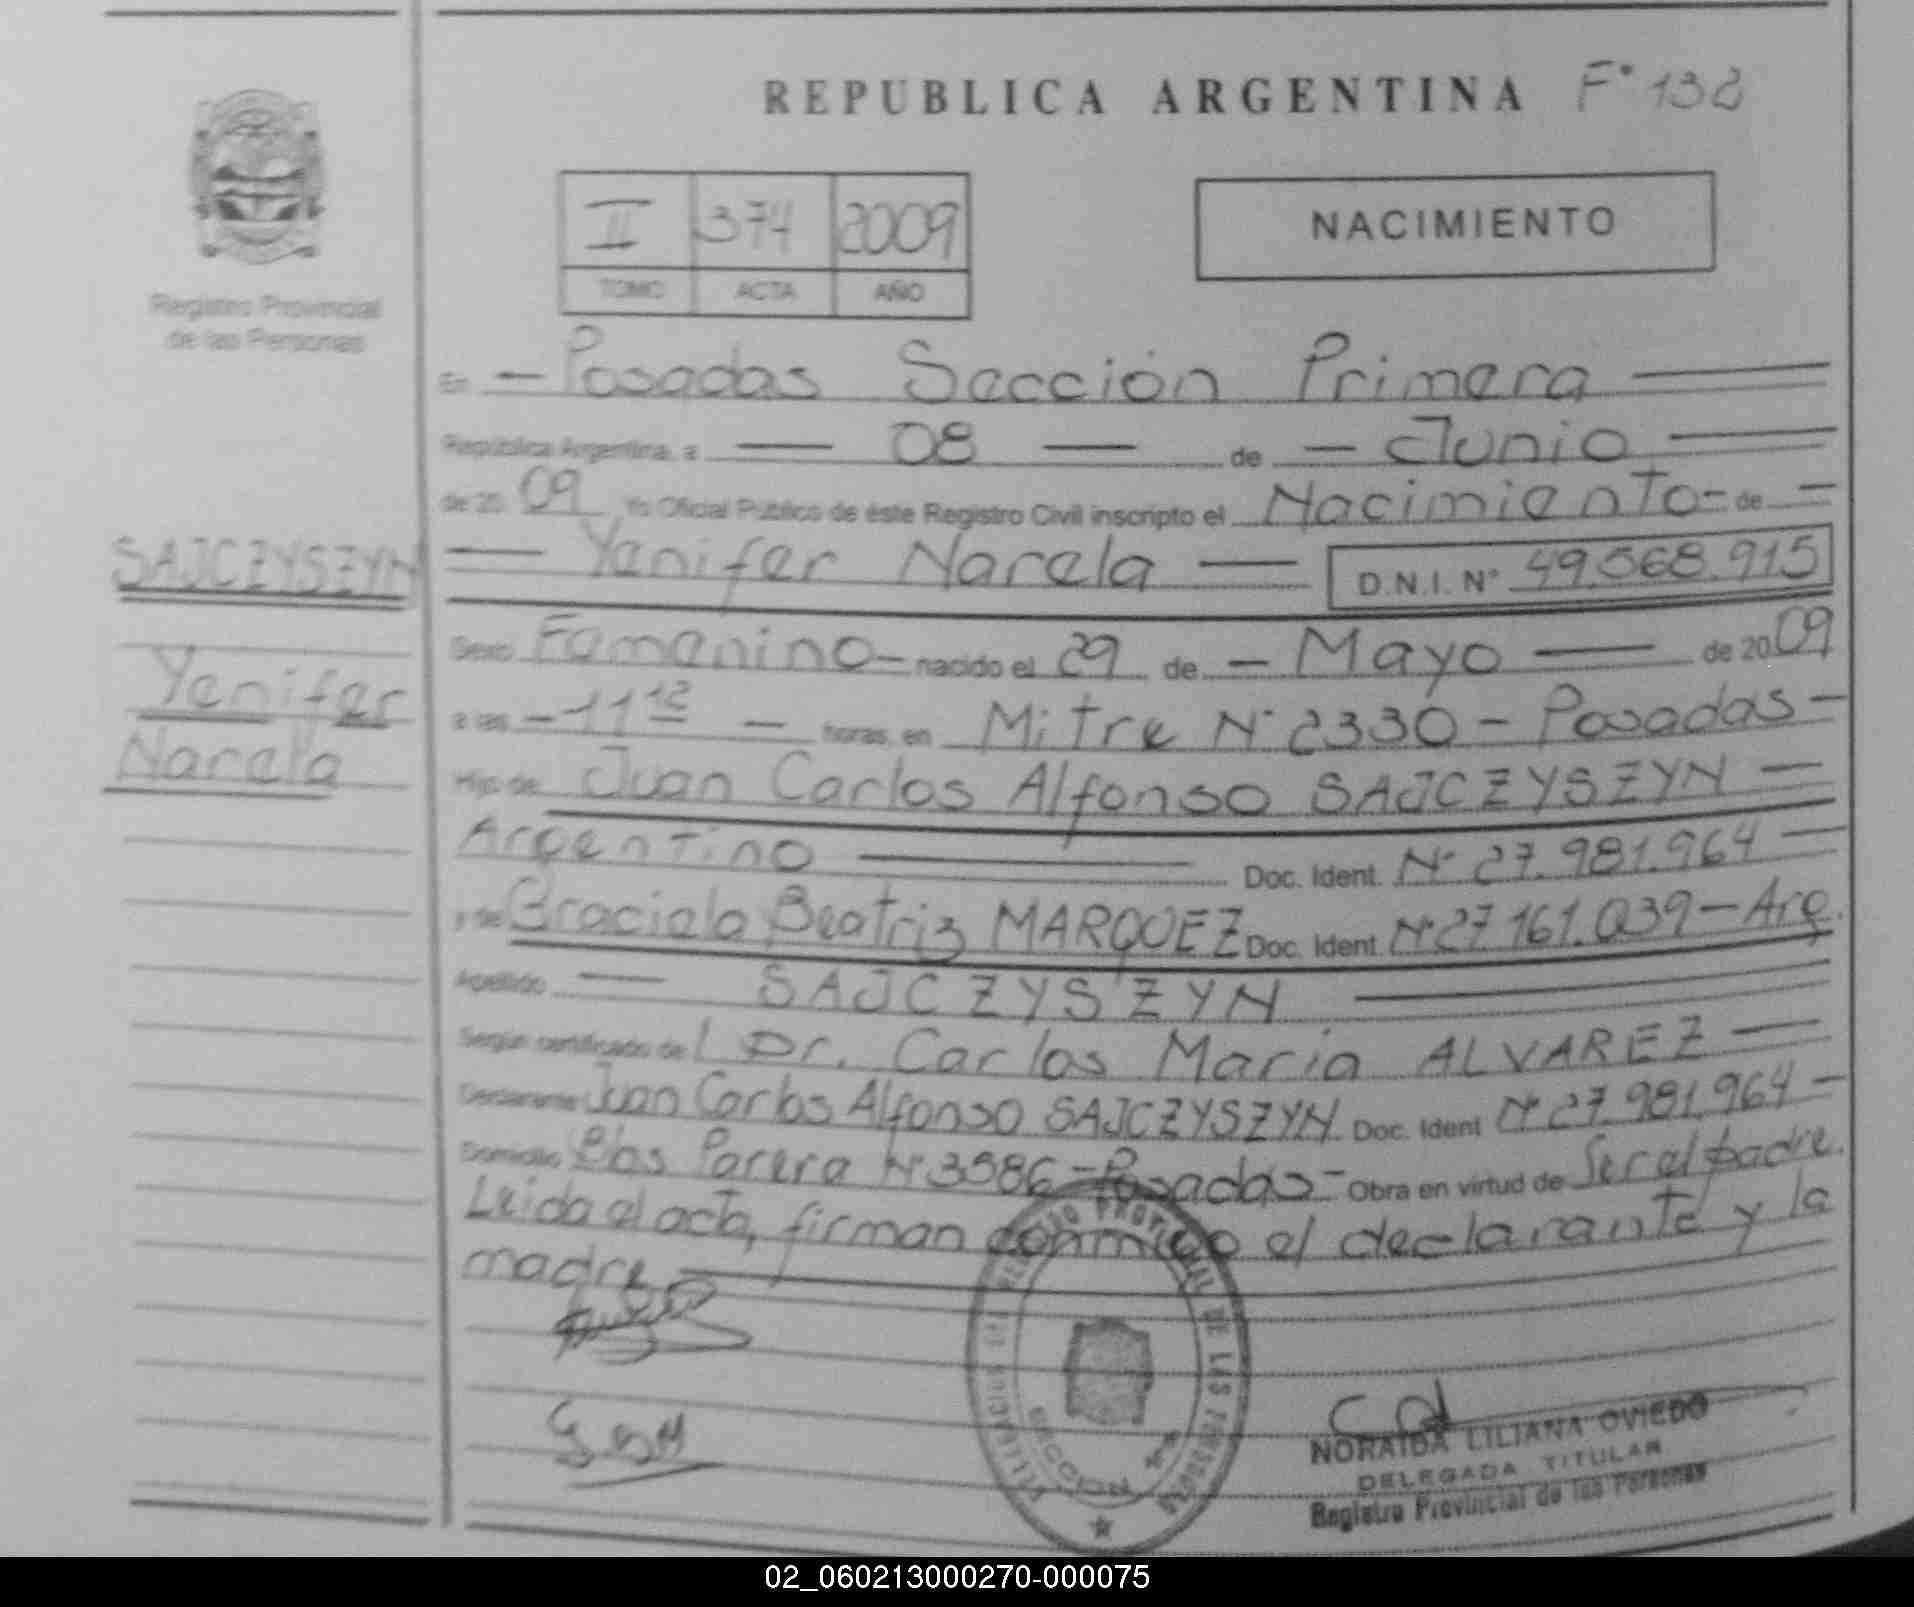 REPUBLICA ARGENTINA F° 132
II 374 2009
TOMO ACTA AÑO
NACIMIENTO
Registro Provincial
de las Personas
En - Posadas Sección Primera
República Argentina, a 08 de - Junio
de 20 09 Yo Oficial Público de éste Registro Civil inscripto el Nacimiento - de -
Yenifer Narela D.N.I. N° 49.568.915
SAJCZYSZYN
Yenifer
Narela
Sexo Femenino - nacido el 29 de - Mayo de 20 09
a las - 11 12 - horas, en Mitre N° 2330 - Posadas -
Hijo de Juan Carlos Alfonso SAJCZYSZYN -
Argentino Doc. Ident. N° 27.981.964
y de Graciela Beatriz MARQUEZ Doc. Ident. N° 27.161.039 - Arg.
Apellido SAJCZYSZYN
Según certificado de Dr. Carlos Maria ALVAREZ
Declarante Juan Carlos Alfonso SAJCZYSZYN Doc. Ident N° 27.981.964 -
Domicilio Blas Parera N° 3586 - Posadas - Obra en virtud de Ser el padre.
Leida el acta, firman conmigo el declarante y la
madre
REGISTRO PROVINCIAL DE LAS PERSONAS
SECCION 1a
NORAIDA LILIANA OVIEDO
DELEGADA TITULAR
Registro Provincial de las Personas
02_060213000270-000075